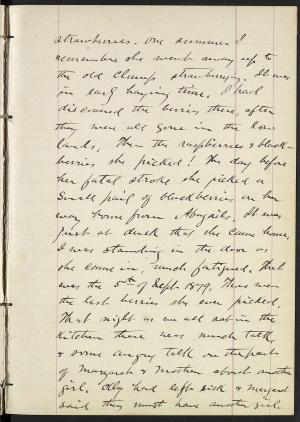 strawberries. One summer I
remember she went away up to
the old Clump strawberrying. It was
in early haying time. I had
discovered the berries there, after
they were all gone in the low
lands. Then the raspberries & black-
berries she picked! The day before
her fatal stroke she picked a
small pail of blackberries on her
way home from Abigails. It was
just at dusk that she came home,
I was standing in the door as
she came in, much fatigued. That
was the 5th of Sept. 1879. These were
the last berries she ever picked.
That night as we all sat in the
kitchen there was much talk
& some angry talk on the part
of Margaret & Mother about another
girl. Olly had left sick & Margaret
said they must have another girl.